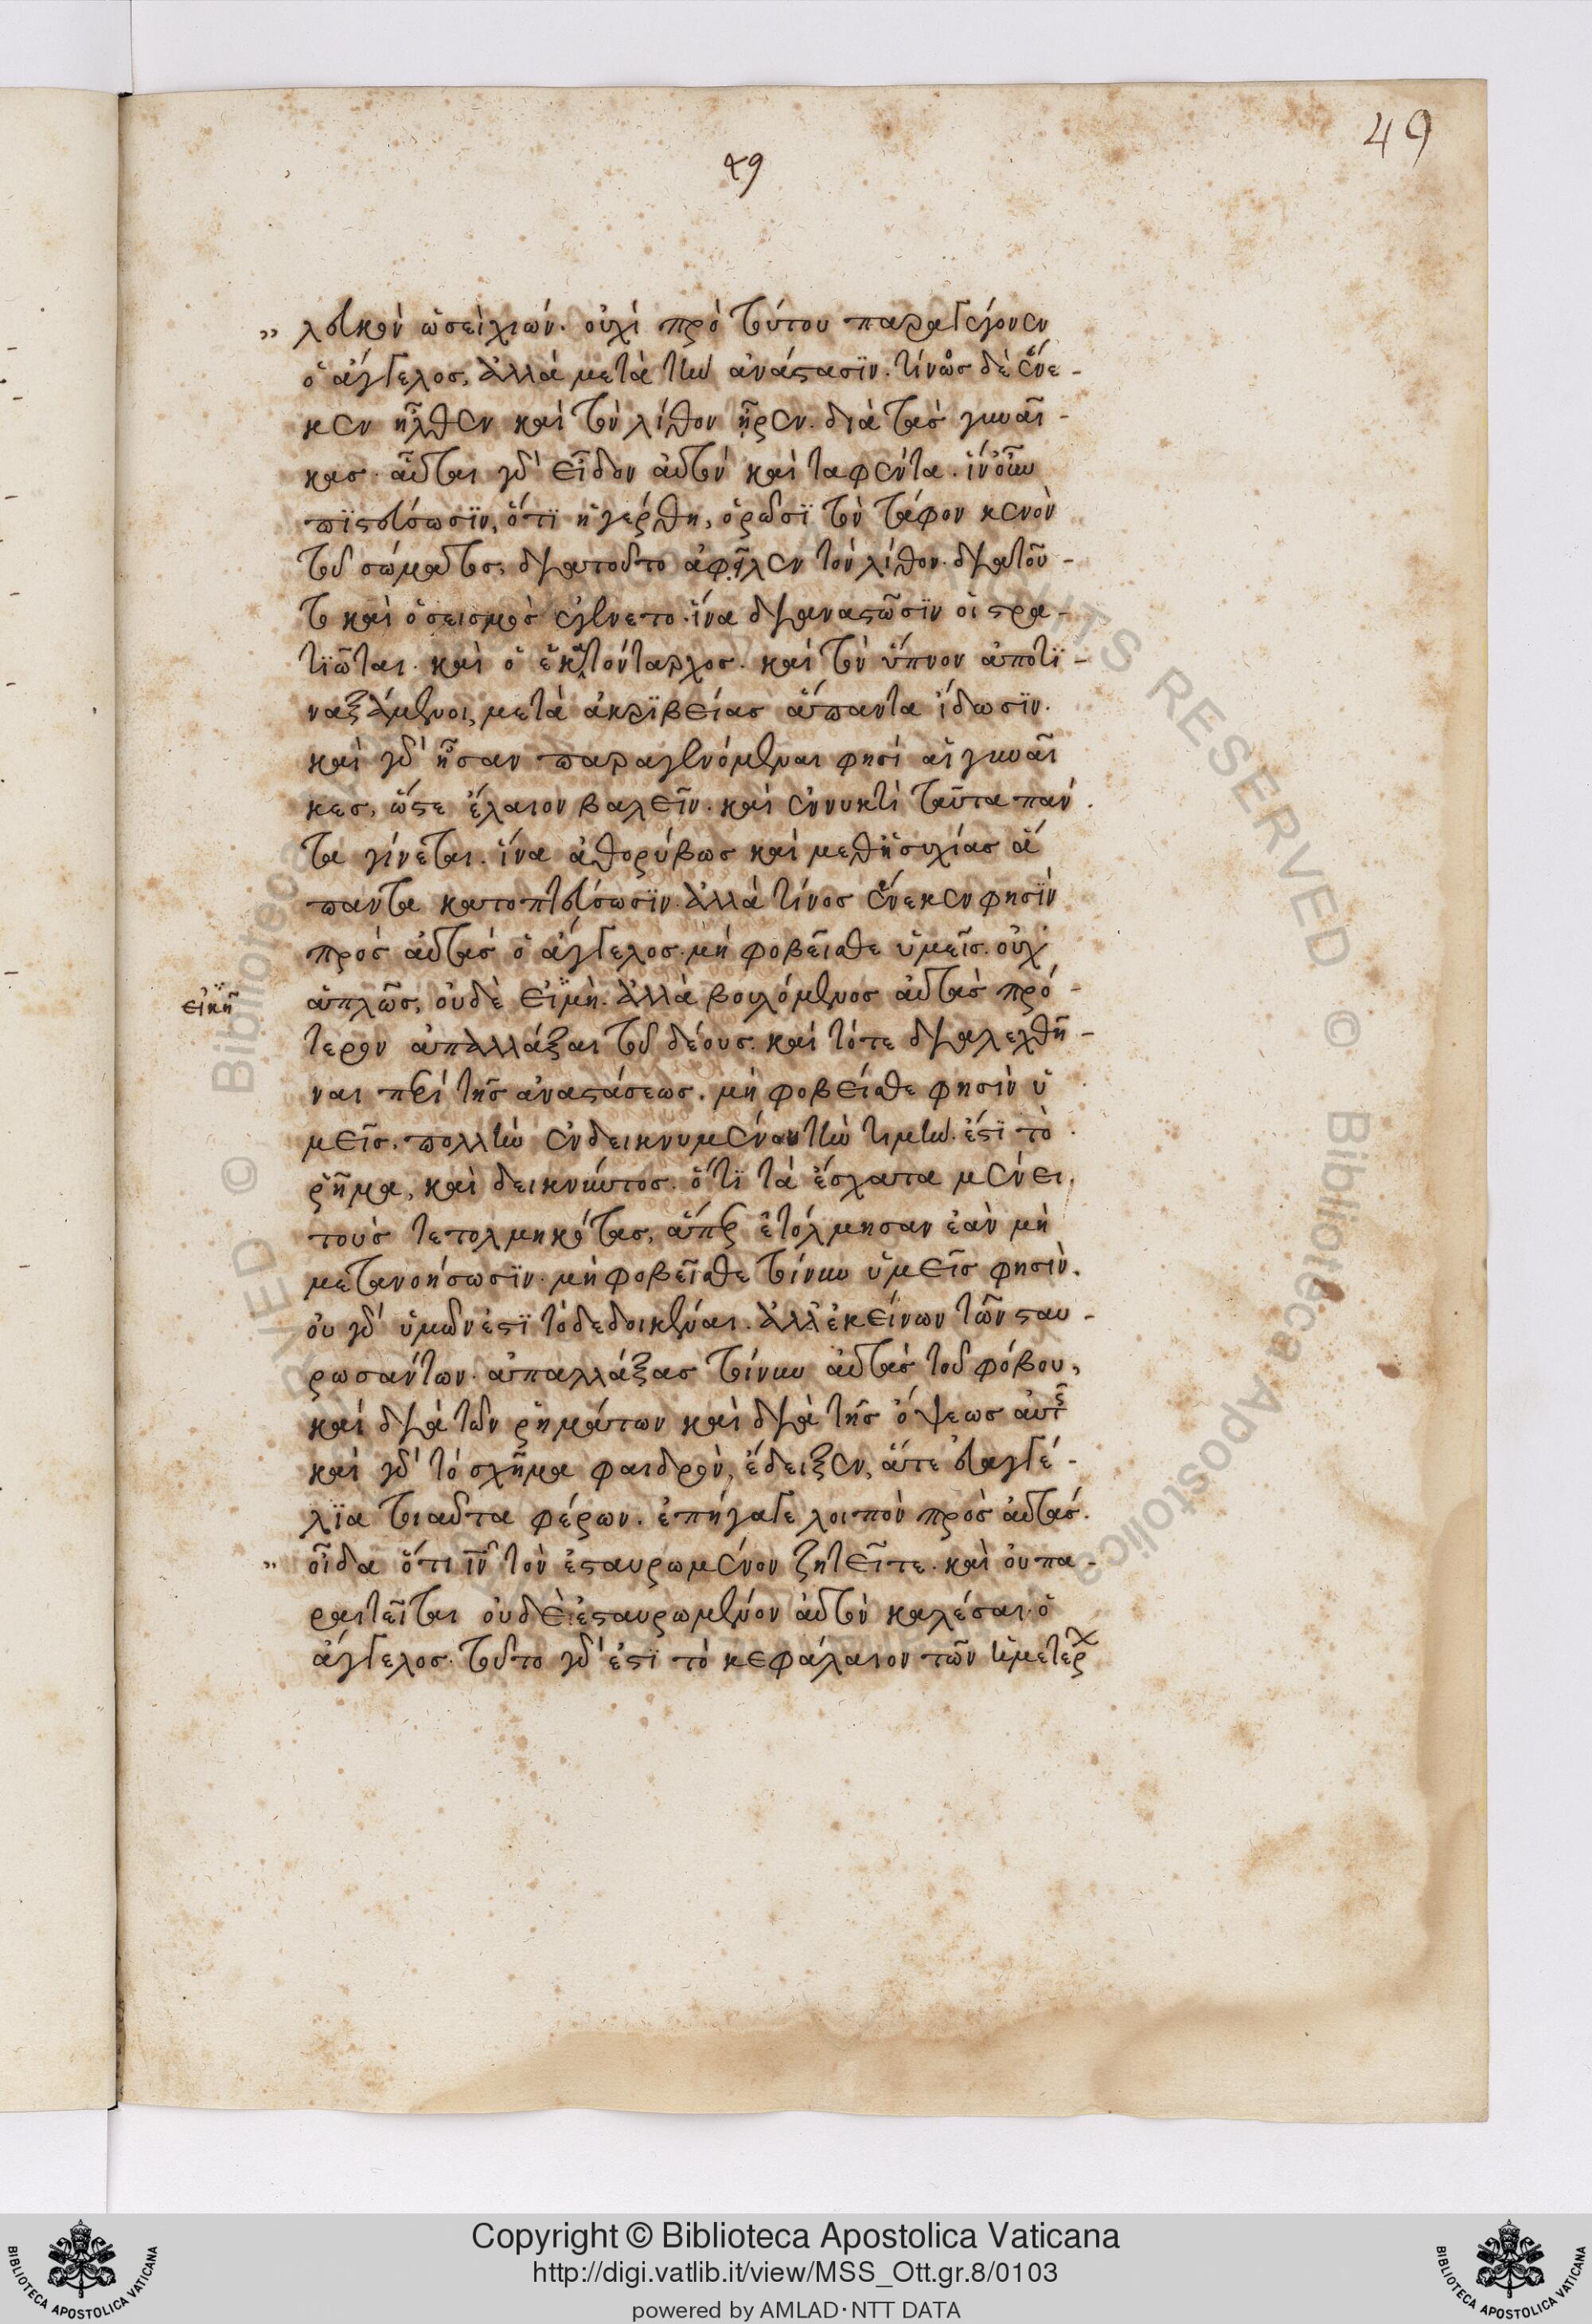 49
49
„ λευκὸν ὡσεὶ χιών. οὐχὶ πρὸ τούτου παραγέγονεν
ὁ ἄγγελος, ἀλλὰ μετὰ τὴν ἀνάστασϊν. τίνος δὲ ἕνε-
κεν ἦλθεν καὶ τὸν λίθον ἦρεν. διὰ τὰς γυναῖ-
κας. αὗται γὰρ εἶδον αὐτὸν καὶ ταφέντα. ἵν' οὖν
πϊστεύσωσϊν, ὅτϊ ἠγέρθη, ὁρῶσϊ τὸν τάφον κενὸν
τοῦ σώματος, διατοῦτο ἀφεῖλεν τὸν λίθον. διατοῦ-
το καὶ ὁ σεισμὸς ἐγένετο. ἵνα διαναστῶσϊν οἱ στρα-
τϊῶται. καὶ ὁ ἑκατόνταρχος. καὶ τὸν ὕπνον ἀποτϊ-
ναξάμενοι, μετὰ ἀκρϊβείας ἅπαντα ἴδωσϊν.
καὶ γὰρ ἦσαν παραγενόμεναι φησὶ αἱ γυναῖ
κες, ὥστε ἔλαιον βαλεῖν. καὶ ἐν νυκτὶ ταῦτα πάν
τα γίνεται. ἵνα ἀθορύβως καὶ μεθ' ἡσυχίας ἅ
παντα κατοπτεύσωσϊν. ἀλλὰ τίνος ἕνεκεν φησϊν
πρὸς αὐτὰς ὁ ἄγγελος. μὴ φοβεῖσθε ὑμεῖς. οὐχ'
εἰκῆ
ἁπλῶς, οὐδὲ εἰ μὴ. ἀλλὰ βουλόμενος αὐτὰς πρό-
τερον ἀπαλλάξαι τοῦ δέους. καὶ τότε διαλεχθῆ-
ναι περὶ τῆς ἀναστάσεως. μὴ φοβεῖσθε φησὶν ὑ
μεῖς. πολλὴν ἐνδεικνυμένου τὴν τιμὴν. ἐστϊ τὸ
ῥῆμα, καὶ δεικνύντος. ὅτϊ τὰ ἔσχατα μένει.
τοὺς τετολμηκότας, ἅπερ ἐτόλμησαν ἐὰν μὴ
μετανοήσωσϊν. μὴ φοβεῖσθε τοίνυν ὑμεῖς φησὶν.
οὐ γὰρ ὑμῶν ἐστϊ τὸ δεδοικέναι. ἀλλ' ἐκείνων τῶν σταυ-
ρωσάντων. ἀπαλλάξας τοίνυν αὐτὰς τοῦ φόβου,
καὶ διὰ τῶν ῥημάτων καὶ διὰ τῆς ὄψεως αὐτοῦ
καὶ γὰρ τὸ σχῆμα φαιδρὸν, ἔδειξεν, ἅτε εὐαγγέ-
λϊα τοιαῦτα φέρων. ἐπήγαγε λοιπὸν πρὸς αὐτάς.
„ οἶδα ὅτι ἰν τὸν ἐσταυρωμένον ζητεῖτε. καὶ οὐ πα-
ραιτεῖται οὐδὲ ἐσταυρωμένον αὐτὸν καλέσαι. ὁ
ἄγγελος. τοῦτο γὰρ ἐστϊ τὸ κεφάλαιον τῶν ἡμετέρ
Copyright © Biblioteca Apostolica Vaticana
http://digi.vatlib.it/view/MSS_Ott.gr.8/0103
powered by AMLAD·NTT DATA